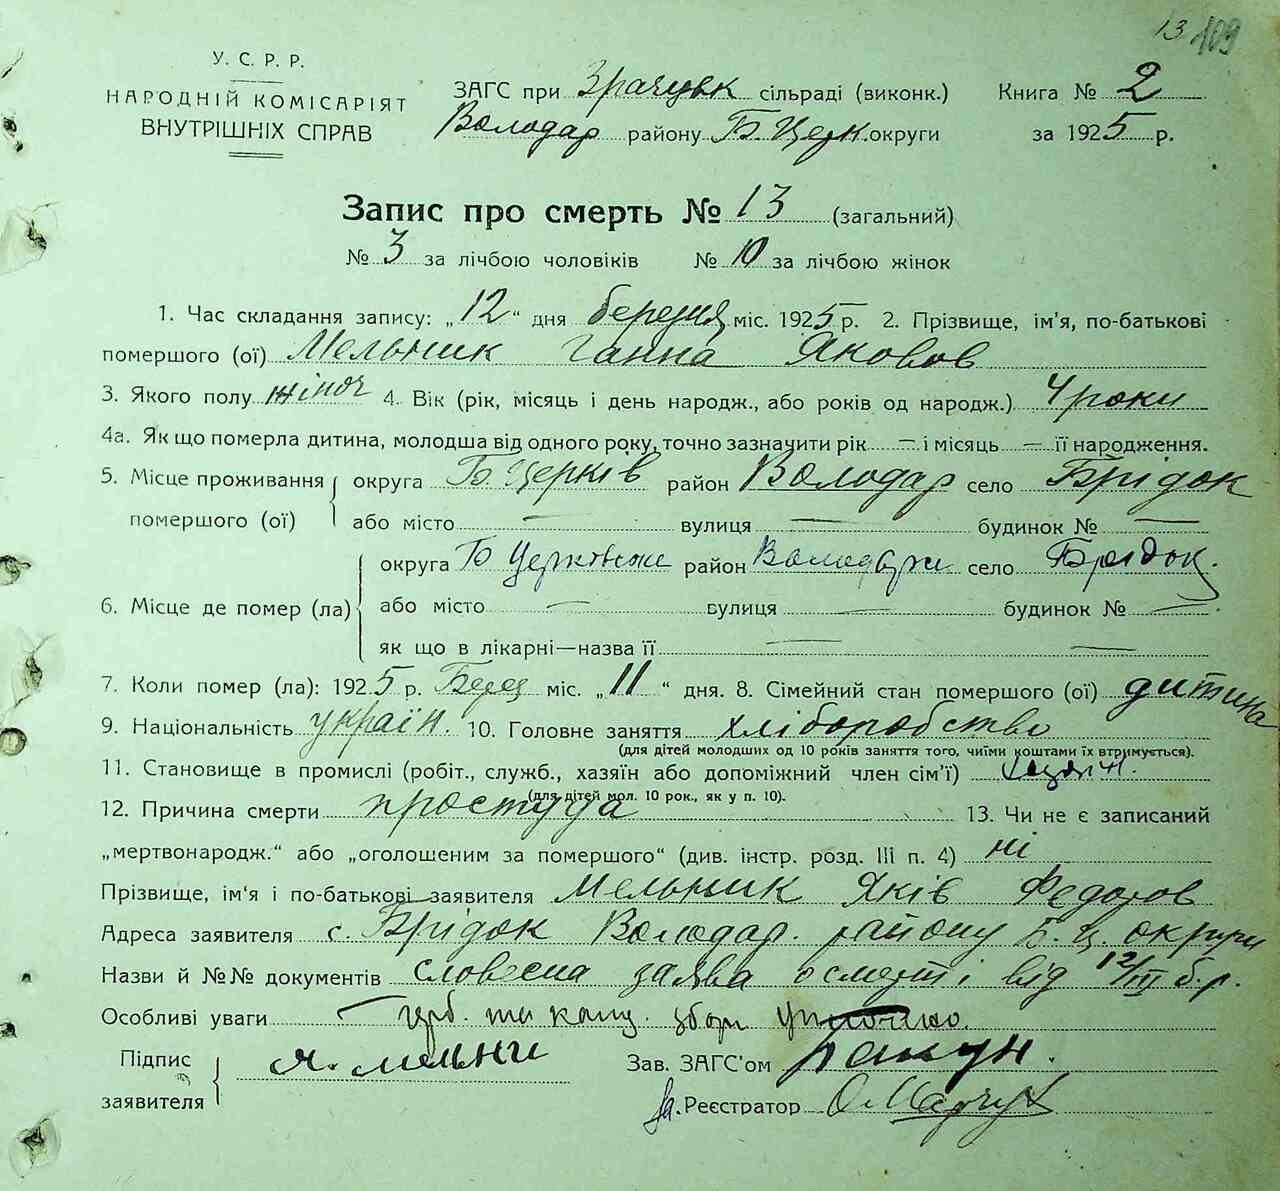 13 109
У. С. Р. Р.
НАРОДНІЙ КОМІСАРІЯТ
ВНУТРІШНІХ СПРАВ
ЗАГС при Зрачувк сільраді (виконк.) Книга № 2
Володар району Б. Церк. округи за 1925 р.
Запис про смерть № 13 (загальний)
№ 3 за лічбою чоловіків № 10 за лічбою жінок
1. Час складання запису: „12“ дня березня міс. 1925 р. 2. Прізвище, ім'я, по-батькові
помершого (ої) Мельник Ганна Яковов
3. Якого полу жіноч 4. Вік (рік, місяць і день народж., або років од народж.) 4 роки
4а. Як що померла дитина, молодша від одного року, точно зазначити рік — і місяць — її народження.
5. Місце проживання помершого (ої) округа Б. Церків район Володар село Брідок
або місто — вулиця — будинок № —
6. Місце де помер (ла) округа Б Церківськи район Володарськ село Брідок.
або місто — вулиця — будинок № —
як що в лікарні—назва її — —
7. Коли помер (ла): 1925 р. Берез міс. „11“ дня. 8. Сімейний стан помершого (ої) дитина
9. Національність україн. 10. Головне заняття хліборобство
(для дітей молодших од 10 років заняття того, чиїми коштами їх втримується).
11. Становище в промислі (робіт., служб., хазяїн або допоміжний член сім'ї) хазяїн.
(для дітей мол. 10 рок., як у п. 10).
12. Причина смерти простуда 13. Чи не є записаний
„мертвонародж.“ або „оголошеним за помершого“ (див. інстр. розд. III п. 4) ні
Прізвище, ім'я і по-батькові заявителя Мельник Яків Федоров
Адреса заявителя с. Брідок Володар. району Б. Ц. округи
Назви й №№ документів словесна заява о смерті від 12/III б. р.
Особливі уваги — герб. та канц. збор уплочено.
Підпис заявителя Я. мельни Зав. ЗАГС'ом Бакун.
За. Реєстратор О Марчук